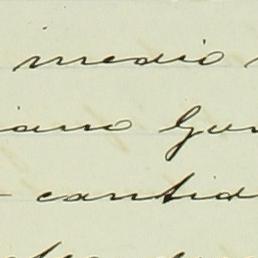 medio
iano Gon
cantid